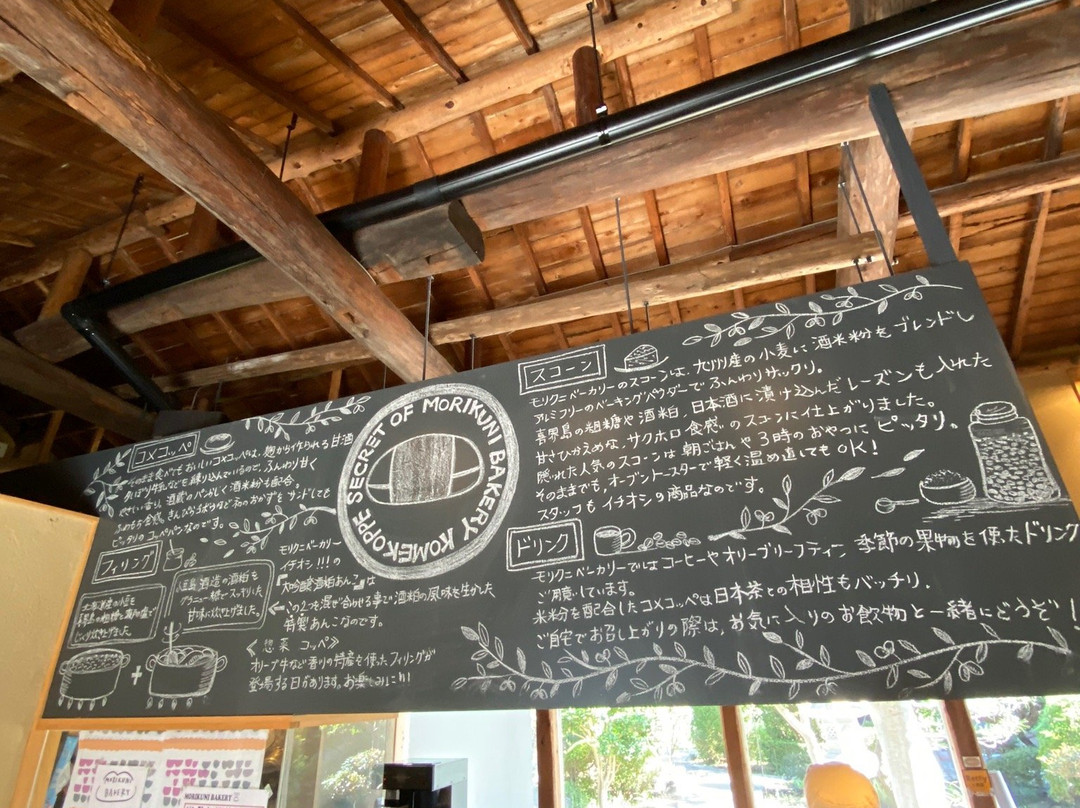 コメコッペ
そのまま食べてもおいしいコメコッペは、麹から作られる甘酒
ふんわり甘く
酒米粉も配合。
ピッタリのコッペパンなのです。
フィリング
小豆島酒造の酒粕を
グラニュー糖でスッキリした
甘味に炊上げました。
北海道産の小豆を
じっくり炊き上げました。
+
モリクニベーカリー
イチオシ!!!の
『大吟醸酒粕あんこ』は
←この2つを混ぜ合わせる事で酒粕の風味を生かした
特製あんこなのです。
《惣菜コッペ》
オリーブ牛など香川の特産を使たフィリングが
登場する日があります。お楽しみに!!!
SECRET OF MORIKUNI BAKERY KOMEKOPPE
スコーン
モリクニベーカリーのスコーンは、九州産の小麦に酒米粉をブレンドし
アルミフリーのベーキングパウダーでふんわりサックリ。
喜界島の粗糖や酒粕、日本酒に漬け込んだレーズンも入れた
甘さひかえめな、サクホロ食感のスコーンに仕上がりました。
隠れた人気のスコーンは朝ごはんや3時のおやつにピッタリ。
そのままでも、オーブントースターで軽く温め直してもOK!
スタッフもイチオシの商品なのです。
ドリンク
モリクニベーカリーではコーヒーやオリーブリーフティー、季節の果物を使たドリンク
ご用意しています。
米粉を配合したコメコッペは日本茶との相性もバッチリ.
ご自宅でお召し上がりの際は、お気に入りのお飲物と一緒にどうぞ!
MORIKUNI
BAKERY
MORIKUNI BAKERY